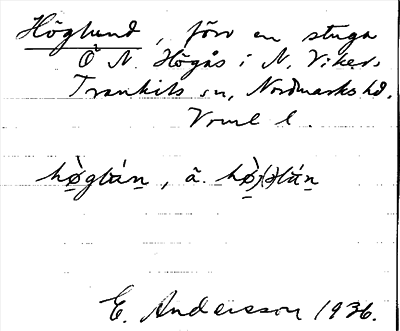 Höglund, förr en stuga
Ö N. Högås i N. Viker,
Trankils sn, Nordmarks hd.
Vrml l.
hø̀glán, ä. hø̀)(ə)lán
E. Andersson 1936.